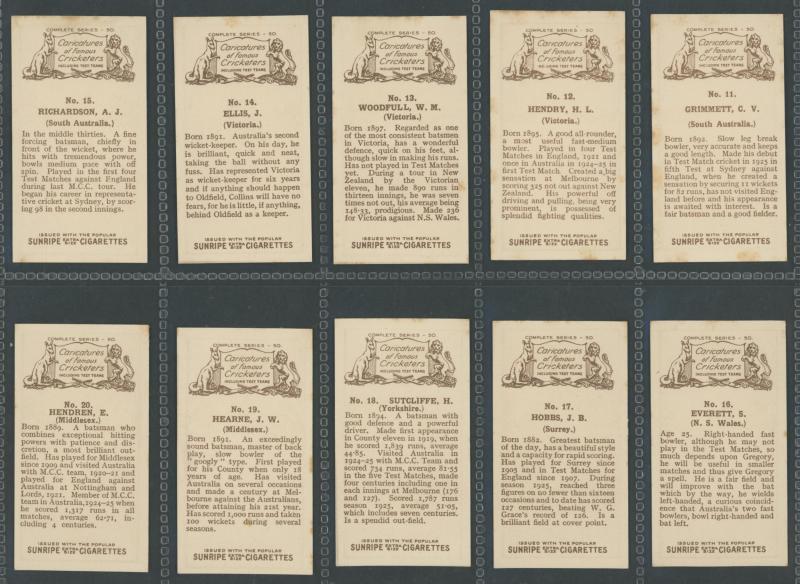 COMPLETE SERIES - 50.
Caricatures
of Famous
Cricketers
INCLUDING TEST TEAMS
No. 15.
RICHARDSON, A. J.
(South Australia.)
In the middle thirties. A fine
forcing batsman, chiefly in
front of the wicket, where he
hits with tremendous power,
bowls medium pace with off
spin. Played in the first four
Test Matches against England
during last M.C.C. tour. He
began his career in representa-
tive cricket at Sydney, by scor-
ing 98 in the second innings.
ISSUED WITH THE POPULAR
SUNRIPE CIGARETTES
COMPLETE SERIES - 50.
Caricatures
of Famous
Cricketers
INCLUDING TEST TEAMS
No. 14.
ELLIS, J.
(Victoria.)
Born 1891. Australia's second
wicket-keeper. On his day, he
is brilliant, quick and neat,
taking the ball without any
fuss. Has represented Victoria
as wicket-keeper for six years
and if anything should happen
to Oldfield, Collins will have no
fears, for he is little, if anything,
behind Oldfield as a keeper.
ISSUED WITH THE POPULAR
SUNRIPE CIGARETTES
COMPLETE SERIES - 50.
Caricatures
of Famous
Cricketers
INCLUDING TEST TEAMS
No. 13.
WOODFULL, W. M.
(Victoria.)
Born 1897. Regarded as one
of the most consistent batsmen
in Victoria, has a wonderful
defence, quick on his feet, al-
though slow in making his runs.
Has not played in Test Matches
yet. During a tour in New
Zealand by the Victorian
eleven, he made 890 runs in
thirteen innings, he was seven
times not out, his average being
148·33, prodigious. Made 236
for Victoria against N.S. Wales.
ISSUED WITH THE POPULAR
SUNRIPE CIGARETTES
COMPLETE SERIES - 50.
Caricatures
of Famous
Cricketers
INCLUDING TEST TEAMS
No. 12.
HENDRY, H. L.
(Victoria.)
Born 1895. A good all-rounder,
a most useful fast-medium
bowler. Played in four Test
Matches in England, 1921 and
once in Australia in 1924-25 in
first Test Match. Created a big
sensation at Melbourne by
scoring 325 not out against New
Zealand. His powerful off
driving and pulling, being very
prominent, is possessed of
splendid fighting qualities.
ISSUED WITH THE POPULAR
SUNRIPE CIGARETTES
COMPLETE SERIES - 50.
Caricatures
of Famous
Cricketers
INCLUDING TEST TEAMS
No. 11.
GRIMMETT, C. V.
(South Australia.)
Born 1892. Slow leg break
bowler, very accurate and keeps
a good length. Made his debut
in Test Match cricket in 1925 in
fifth Test at Sydney against
England, when he created a
sensation by securing 11 wickets
for 82 runs, has not visited Eng-
land before and his appearance
is awaited with interest. Is a
fair batsman and a good fielder.
ISSUED WITH THE POPULAR
SUNRIPE CIGARETTES
COMPLETE SERIES - 50.
Caricatures
of Famous
Cricketers
INCLUDING TEST TEAMS
No. 20.
HENDREN, E.
(Middlesex.)
Born 1889. A batsman who
combines exceptional hitting
powers with patience and dis-
cretion, a most brilliant out-
field. Has played for Middlesex
since 1909 and visited Australia
with M.C.C. team, 1920-21 and
played for England against
Australia at Nottingham and
Lords, 1921. Member of M.C.C.
team in Australia, 1924-25 when
he scored 1,317 runs in all
matches, average 62·71, in-
cluding 4 centuries.
ISSUED WITH THE POPULAR
SUNRIPE CIGARETTES
COMPLETE SERIES - 50.
Caricatures
of Famous
Cricketers
INCLUDING TEST TEAMS
No. 19.
HEARNE, J. W.
(Middlesex.)
Born 1891. An exceedingly
sound batsman, master of back
play, slow bowler of the
"googly" type. First played
for his County when only 18
years of age. Has visited
Australia on several occasions
and made a century at Mel-
bourne against the Australians,
before attaining his 21st year.
Has scored 1,000 runs and taken
100 wickets during several
seasons.
ISSUED WITH THE POPULAR
SUNRIPE CIGARETTES
COMPLETE SERIES - 50.
Caricatures
of Famous
Cricketers
INCLUDING TEST TEAMS
No. 18. SUTCLIFFE, H.
(Yorkshire.)
Born 1894. A batsman with
good defence and a powerful
driver. Made first appearance
in County eleven in 1919, when
he scored 1,839 runs, average
44·85. Visited Australia in
1924-25 with M.C.C. Team and
scored 734 runs, average 81·55
in the five Test Matches, made
four centuries including one in
each innings at Melbourne (176
and 127). Scored 1,787 runs
season 1925, average 51·05,
which includes seven centuries.
Is a spendid out-field.
ISSUED WITH THE POPULAR
SUNRIPE CIGARETTES
COMPLETE SERIES - 50.
Caricatures
of Famous
Cricketers
INCLUDING TEST TEAMS
No. 17.
HOBBS, J. B.
(Surrey.)
Born 1882. Greatest batsman
of the day, has a beautiful style
and a capacity for rapid scoring.
Has played for Surrey since
1905 and in Test Matches for
England since 1907. During
season 1925, reached three
figures on no fewer than sixteen
occasions and to date has scored
127 centuries, beating W. G.
Grace's record of 126. Is a
brilliant field at cover point.
ISSUED WITH THE POPULAR
SUNRIPE CIGARETTES
COMPLETE SERIES - 50.
Caricatures
of Famous
Cricketers
INCLUDING TEST TEAMS
No. 16.
EVERETT, S.
(N. S. Wales.)
Age 25. Right-handed fast
bowler, although he may not
play in the Test Matches, so
much depends upon Gregory,
he will be useful in smaller
matches and thus give Gregory
a spell. He is a fair field and
will improve with the bat
which by the way, he wields
left-handed, a curious coincid-
ence that Australia's two fast
bowlers, bowl right-handed and
bat left.
ISSUED WITH THE POPULAR
SUNRIPE CIGARETTES